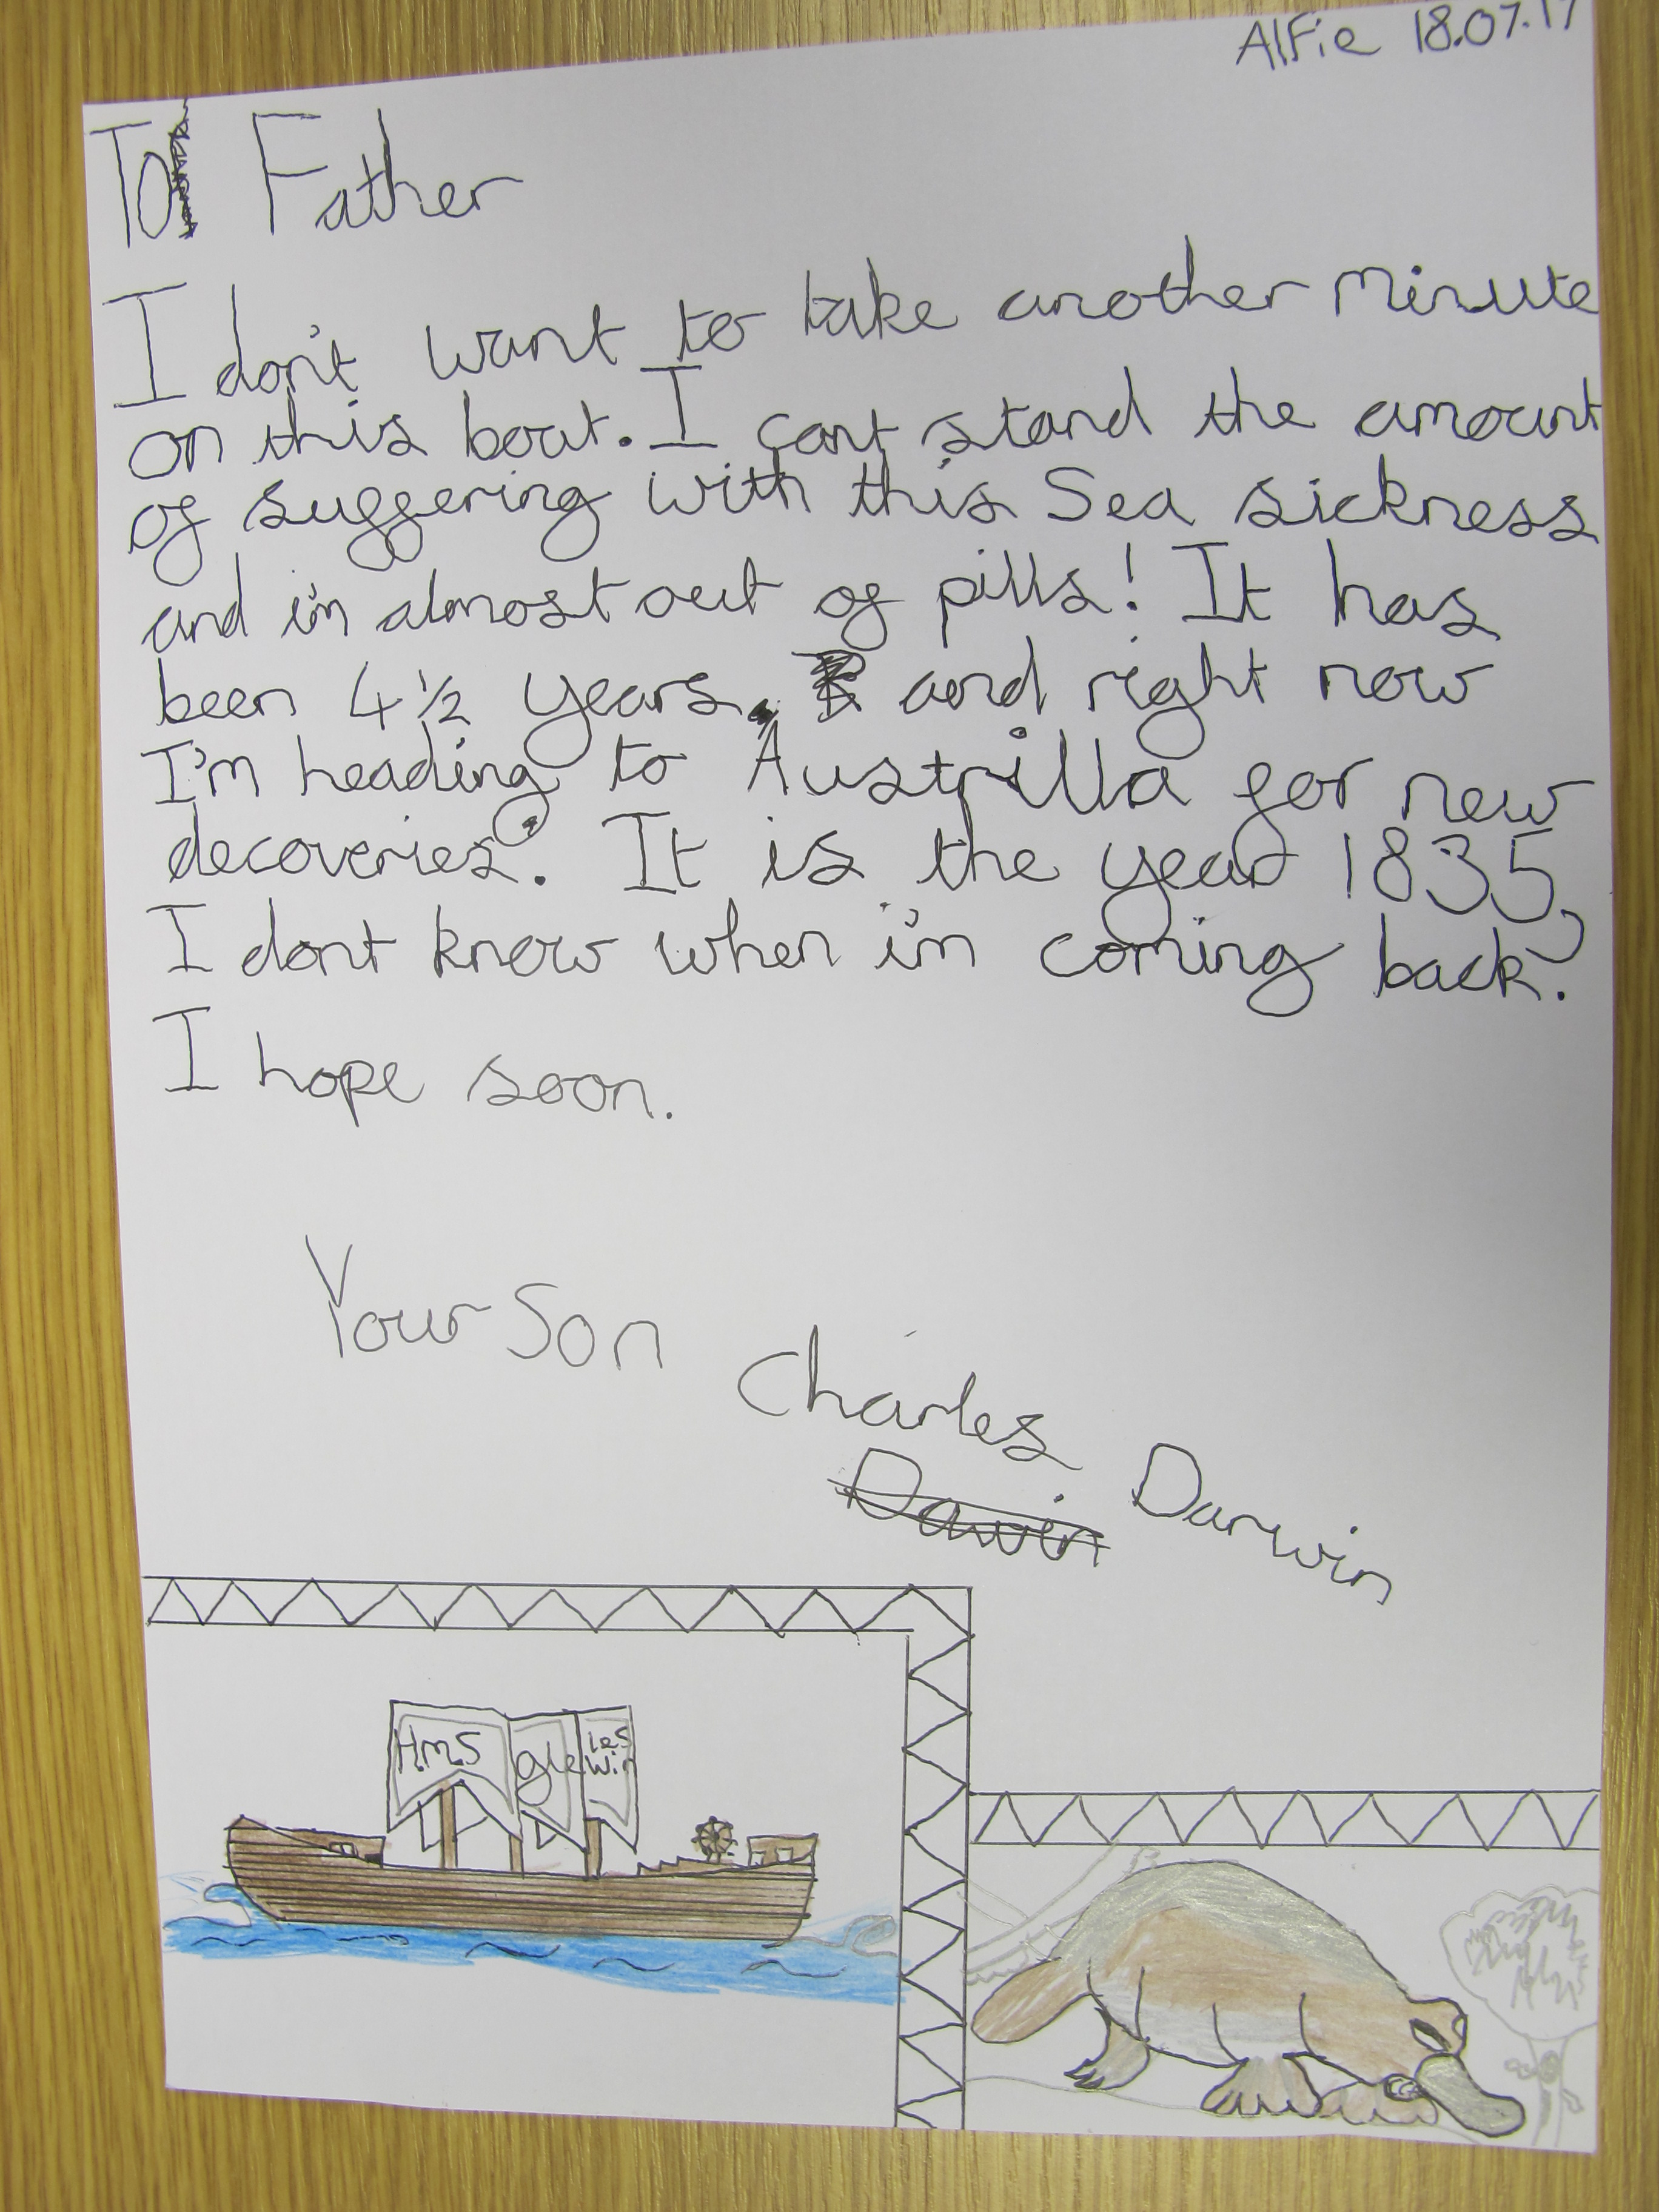 Alfie 18.07.17
To Father
I don't want to take another minute
on this boat. I cant stand the amount
of suffering with this Sea sickness
and i'm almost out of pills! It has
been 4 ½ years. and right now
I'm heading to Austrilla for new
decoveries. It is the year 1835,
I dont know when i'm coming back.
I hope soon.
Your Son
Charles
Dawin
Darwin
H.M.S
gle
les
Win